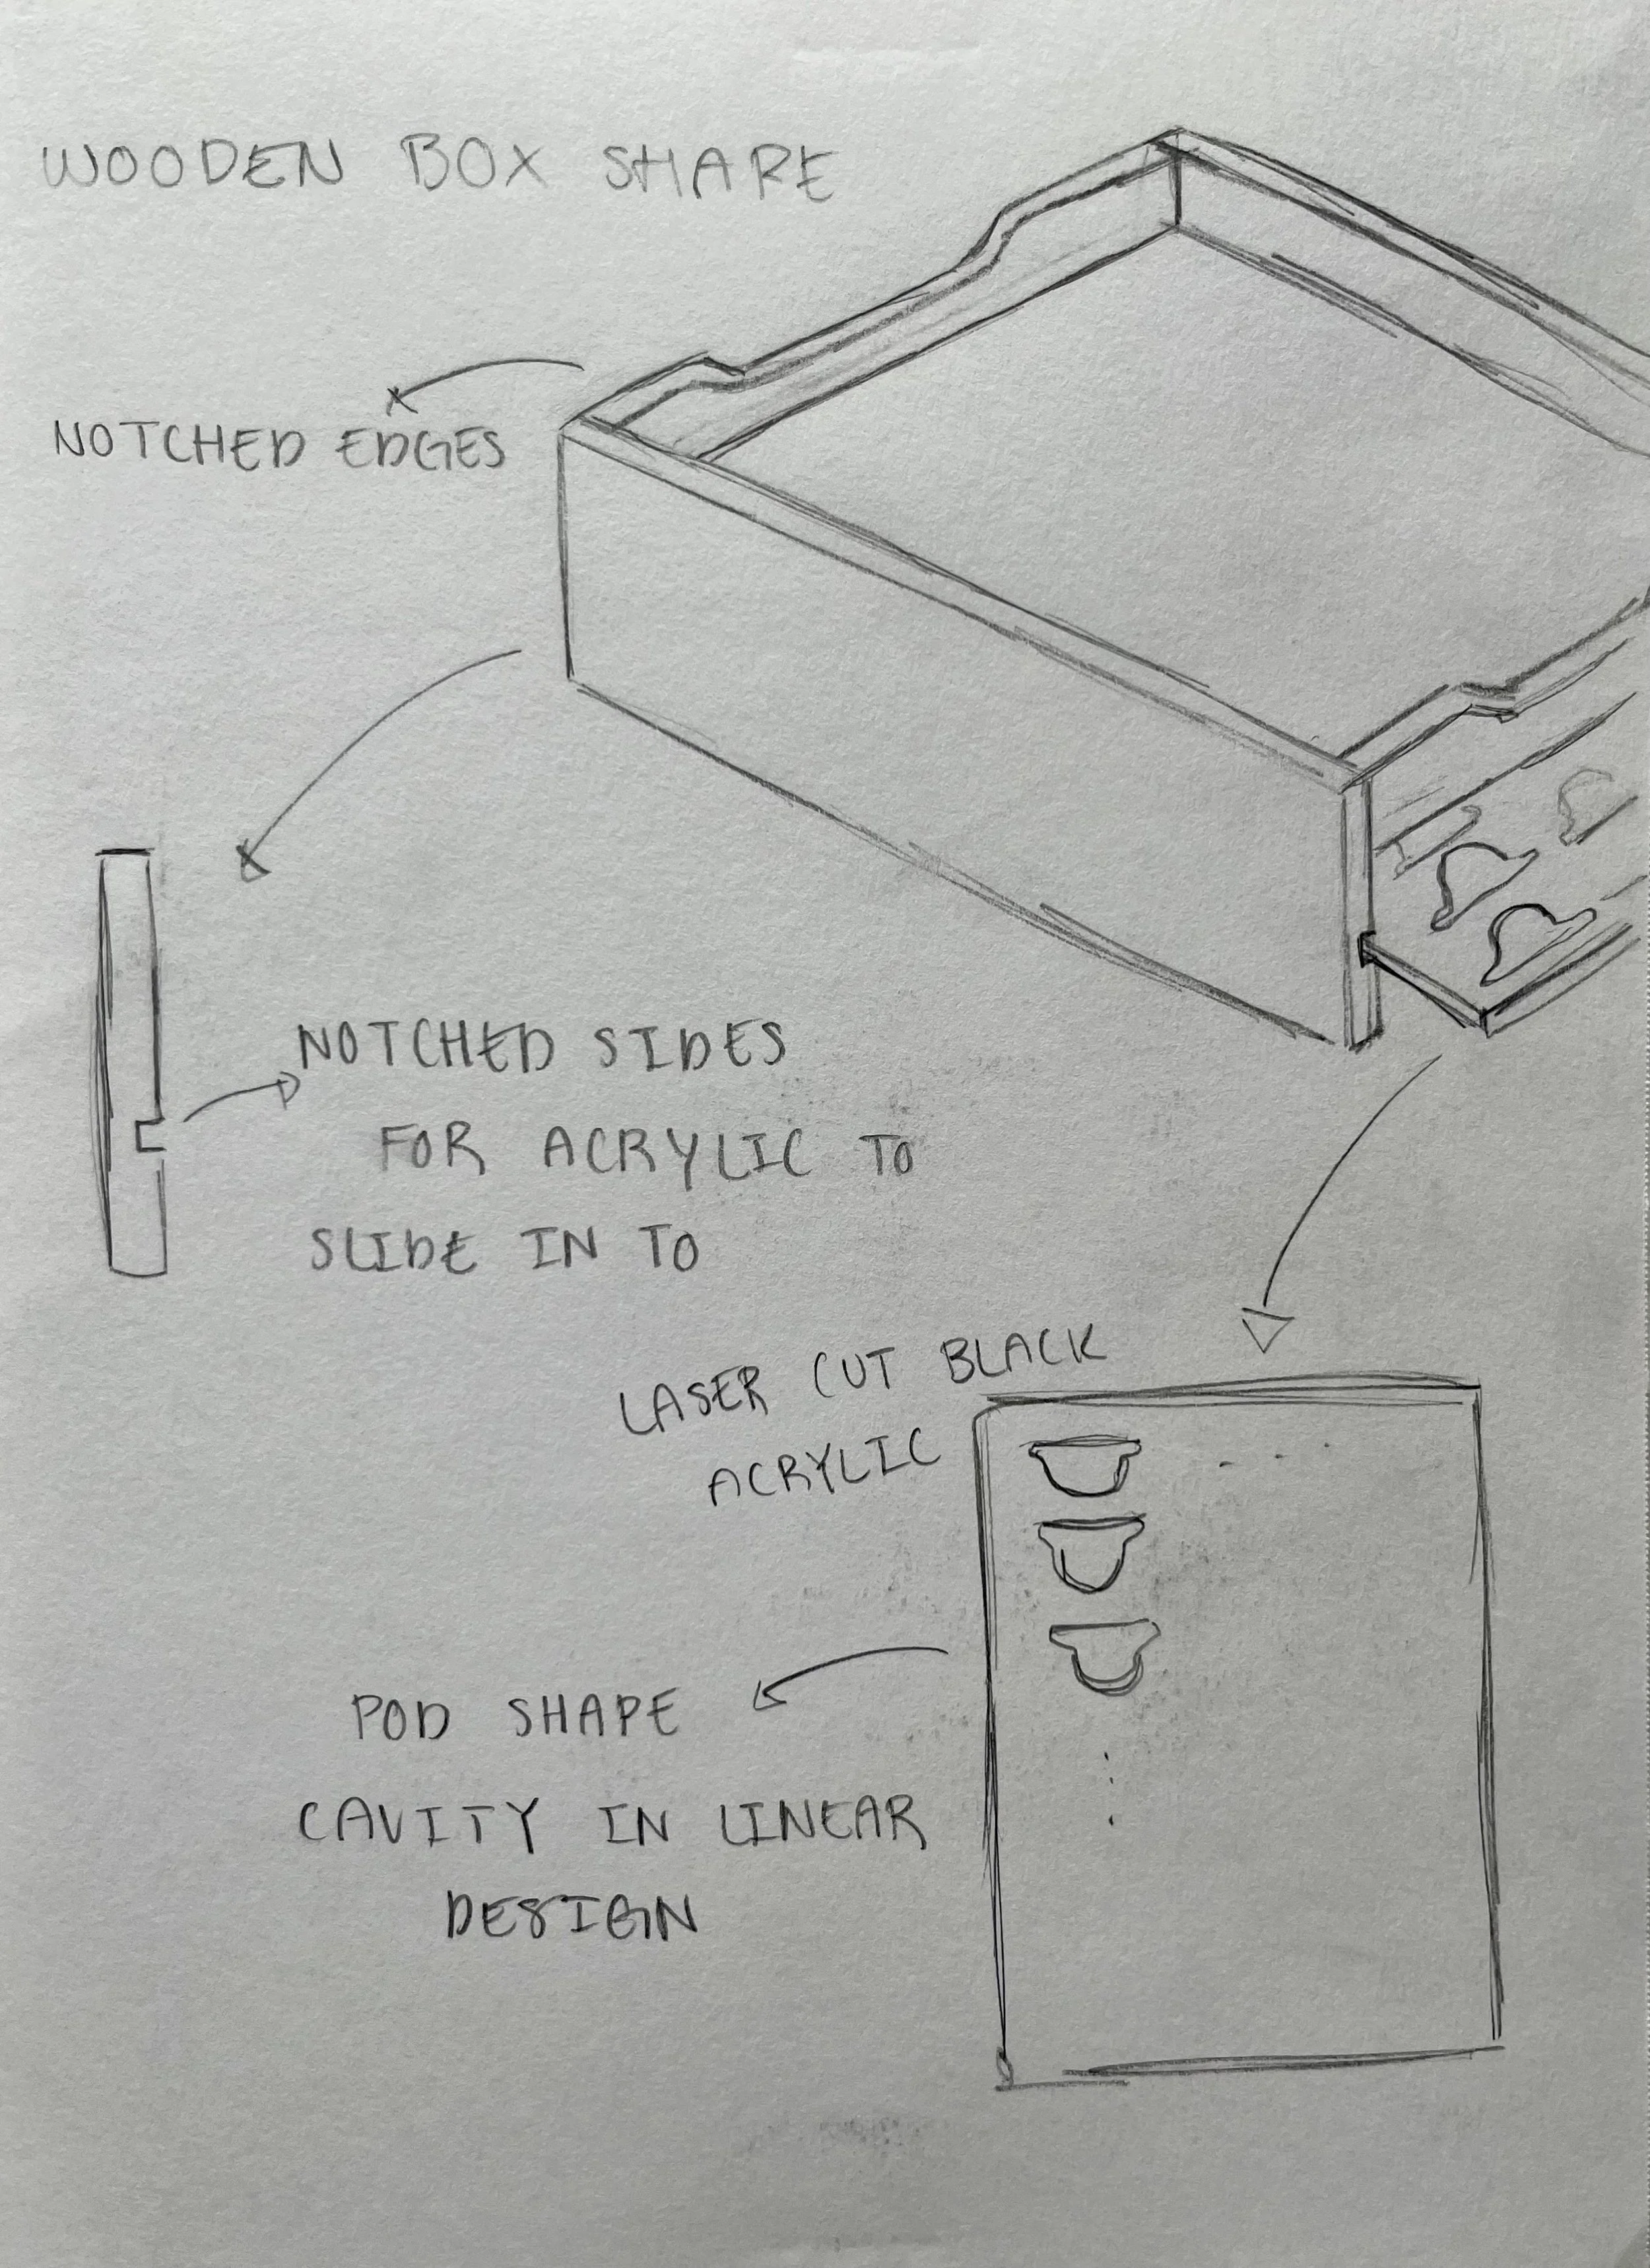 WOODEN BOX SHARE
NOTCHED EDGES
NOTCHED SIDES
FOR ACRYLIC TO
SLIDE IN TO
LASER CUT BLACK
ACRYLIC
POD SHAPE
CAVITY IN LINEAR
DESIGN